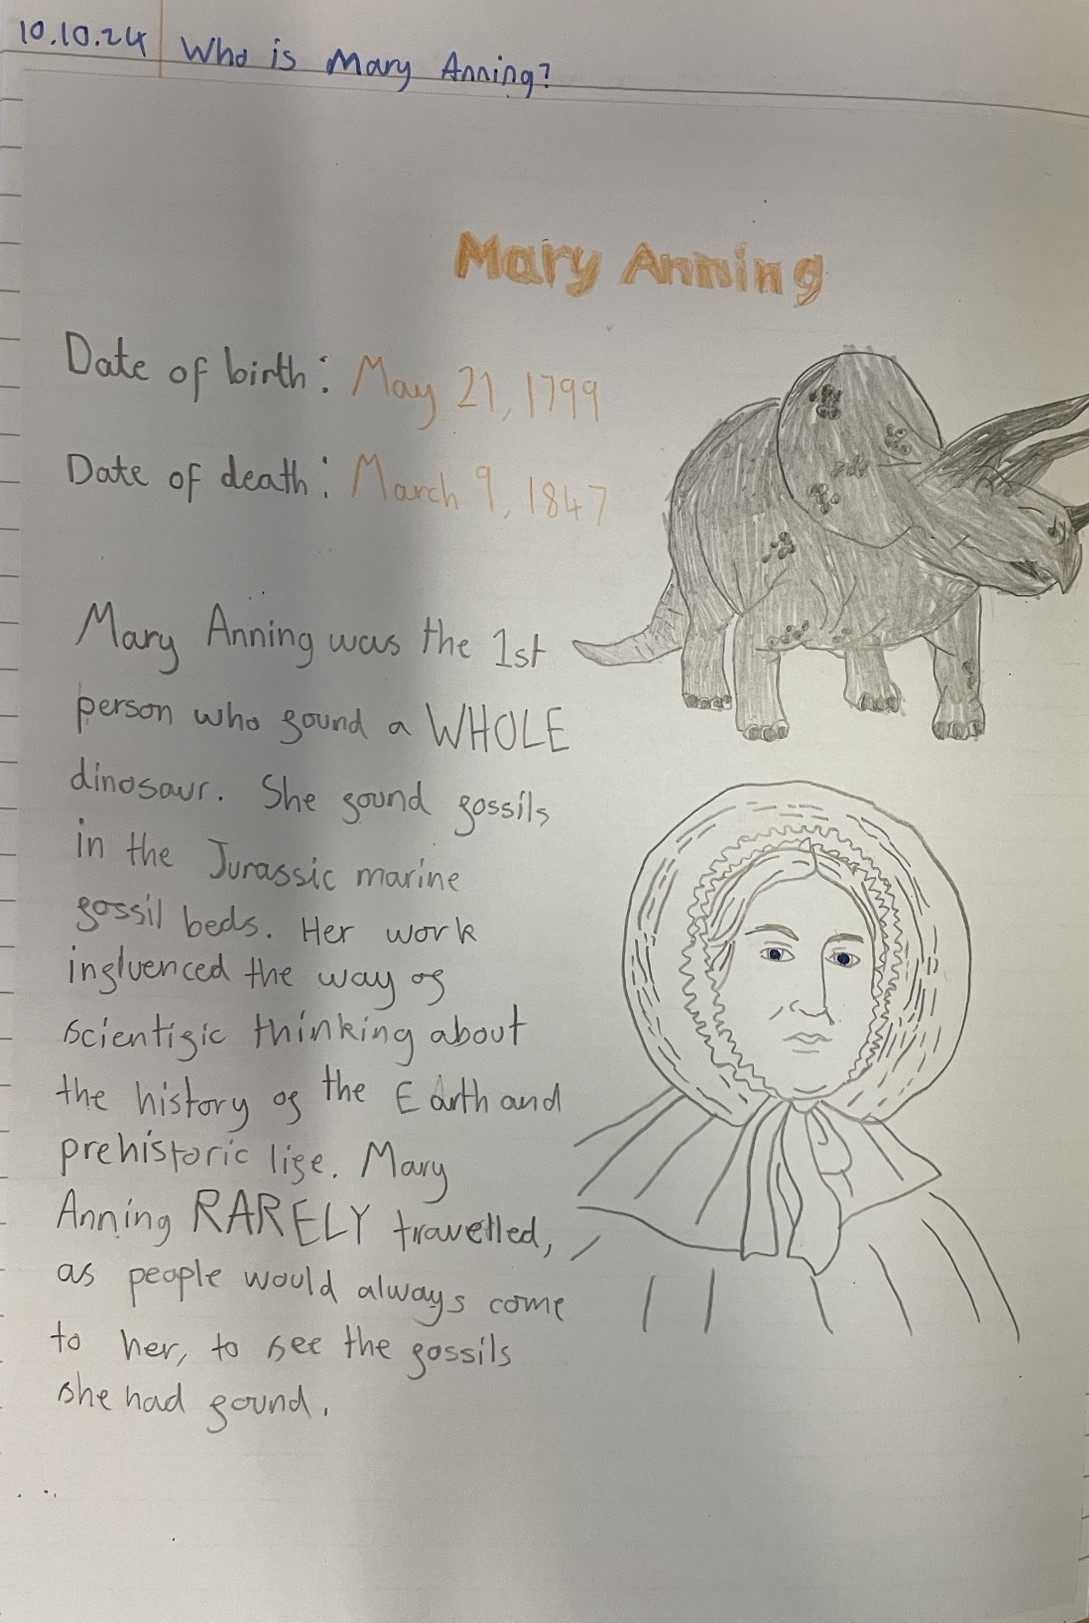 10.10.24 Who is Mary Anning?
Mary Anning
Date of birth: May 21, 1799
Date of death: March 9, 1847
Mary Anning was the 1st
person who found a WHOLE
dinosaur. She found fossils
in the Jurassic marine
fossil beds. Her work
influenced the way of
scientific thinking about
the history of the Earth and
prehistoric life. Mary
Anning RARELY travelled,
as people would always come
to her, to see the fossils
she had found.